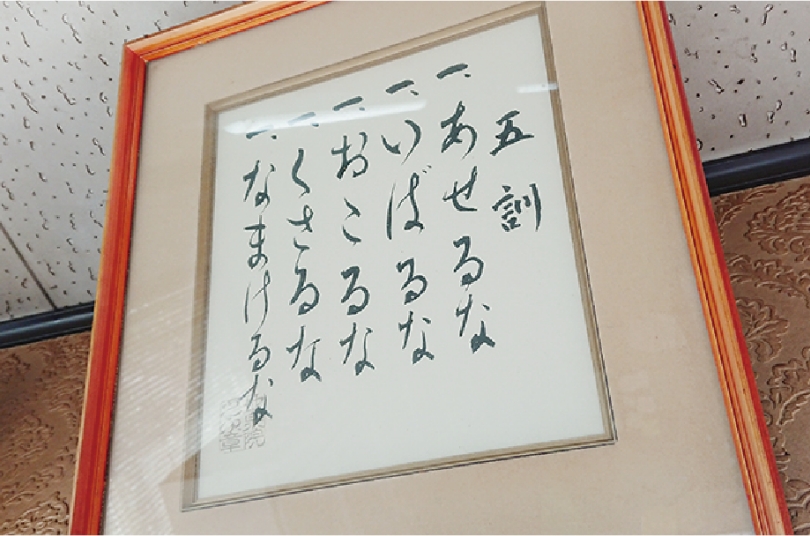 五訓
一、あせるな
一、いばるな
一、おこるな
一、くさるな
一、なまけるな